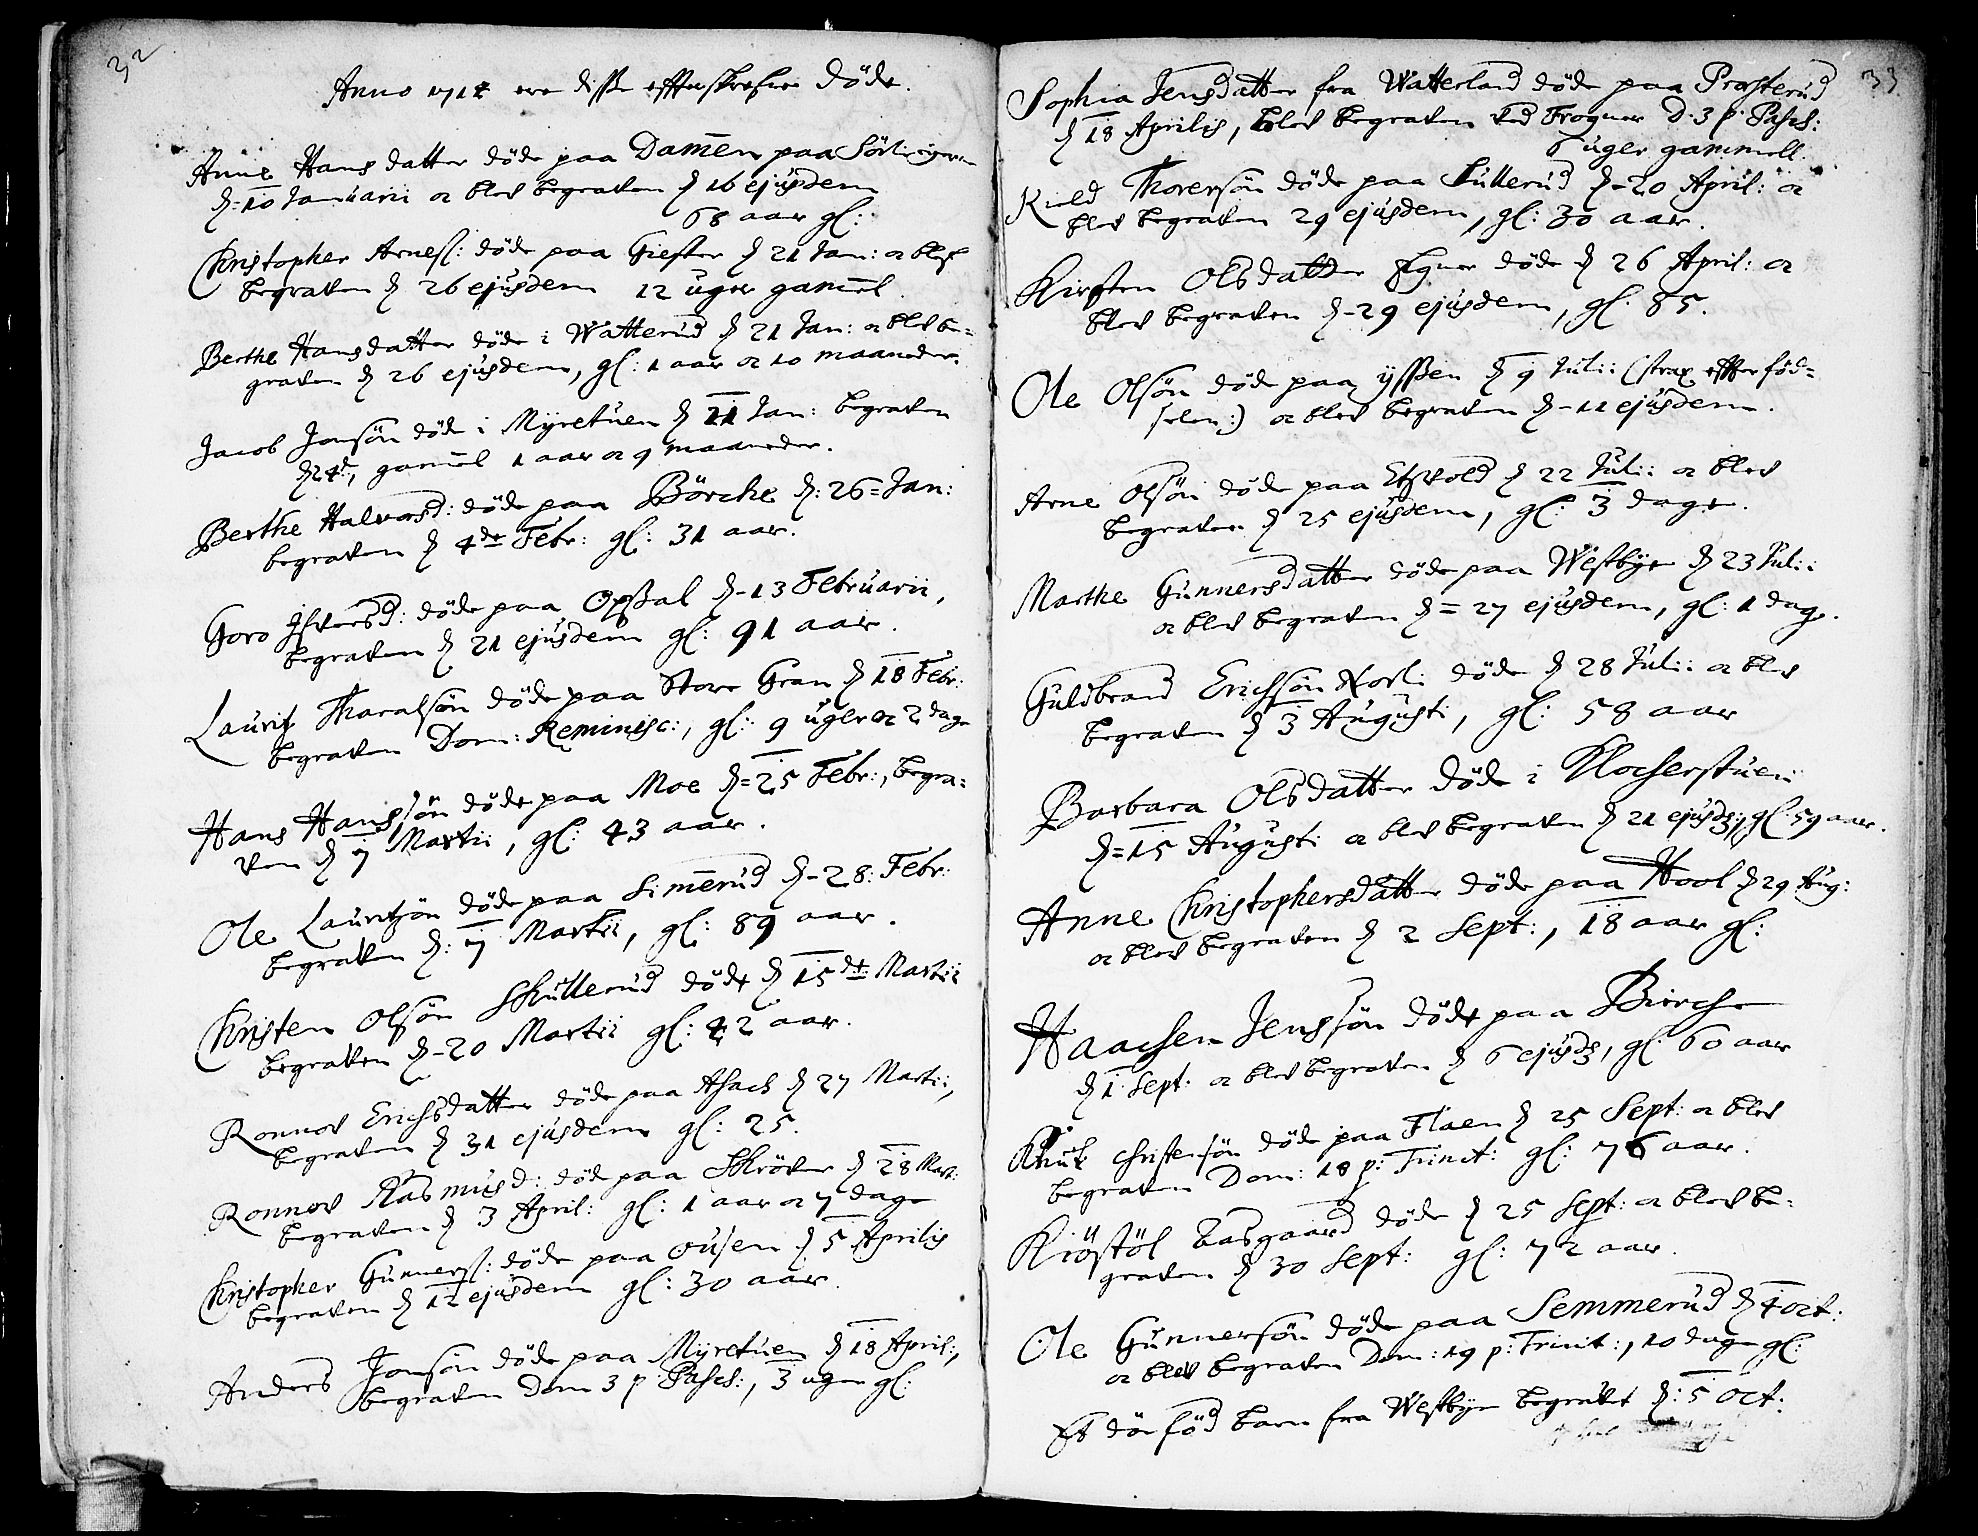 32
Anno 1714 ere disse effterskrefne döde.
Anne Hansdatter döde paa Damen paa
d: 10 Januarii oc blev begraven d 16 ejusdem
68 aar gl:
Christopher Arness: döde paa Giefter d 21 Jan: oc blef
begraven d 26 ejusdem 12 uger gamel
Berthe Hansdatter döde i Watterud d 21 Jan: oc blef be-
graven d 26 ejusdem, gl: 1 aar oc 10 maaneder.
Jacob Jonsön döde i Myretuen d 21 Jan: begraven
d 24de, gamel 1 aar oc 9 maaneder.
Berthe Halvorsd: döde paa Börche d: 26 Jan:
begraven d 4de Febr: gl: 31 aar.
Goro döde paa Opsal d-13 Februarii,
begraven d 21 ejusdem gl: 91 aar.
Lauritz Tharalsön döde paa Store Gran d 18 Febr:
begraven Dom: Reminisc:, gl: 9 uger oc 2 dage
Hans Hanssön döde paa Moe d=25 Febr:, begra-
ven d 7 Martii, gl: 43 aar.
Ole Lauritzön döde paa Simerud d-28: Febr:
begraven d: 7 Martii, gl: 89 aar.
Christen Olsön Skullerud döde d 15de Martii
begraven d-20 Martii gl: 42 aar.
Ronnov Erichsdatter döde paa Asach d 27 Marti:,
begraven d 31 ejusdem gl: 25.
Ronnov Rasmusd: döde paa Skröder d 28 Mart:
begraven d 3 April: gl: 1 aar oc 7 dage
Christopher Gunners: döde paa Ousen d 5 Aprilis
begraven d 12 ejusdem gl: 30 aar.
Anders Jonsön döde paa Myretuen d 18 April:,
begraven Dom 3 p Pasch:, 3 uger gl:
33
Sophia Jensdatter fra Watterland döde paa Prosterud
d 18 Aprilis, blev begraven ved Frogner D. 3 p: Pasch:
6 uger gammell.
Kield Thorersön döde paa Sullerud d-20 April: oc
blev begraven 29 ejusdem, gl: 30 aar.
Kirsten Olsdatter Egner döde d 26 April: oc
blev begraven d-29 ejusdem, gl. 85.
Ole Olsön död paa ysssen d 9 Juli: (strax effter föd-
selen:) oc blev begraven d-11 ejusdem.
Arne Olsön döde paa Etzvold d 22 Juli: oc blev
begraven d 25 ejusdem, gl: 3 dage.
Marthe Gunnersdatter döde paa Westbye d 23 Juli:
oc blev begraven d= 27 ejusdem, gl: 1 dag.
Guldbrand Erichsön Norli döde d 28 Juli: oc blev
begraven d 3 Augusti, gl: 58 aar
Barbara Olsdatter döde i Klocherstuen
d=15 Augusti oc blev begraven d 21 ejusd:, gl. 59 aar.
Anne Christophersdatter döde paa Hool d 29 Aug:
oc blev begraven d 2 Sept:, 18 aar gl:
Haachen Jenssön döde paa Birche
d 1 Sept: oc blev begraven d 6 ejusd:, gl. 60 aar
Knut Christensön döde paa Flaen d 25 Sept: oc blev
begraven Dom: 18 p: Trinit: gl: 76 aar.
Kiöstöl Aasgaard döde d 25 Sept: oc blev be-
graven d 30 Sept: gl: 72 aar.
Ole Gunnersön döde paa Semmerud d 4 Oct:
oc blev begraven Dom: 19 p: Trinit:, 10 dage gl:
Et dön föd barn fra Westbye begravet d: 5 Oct: